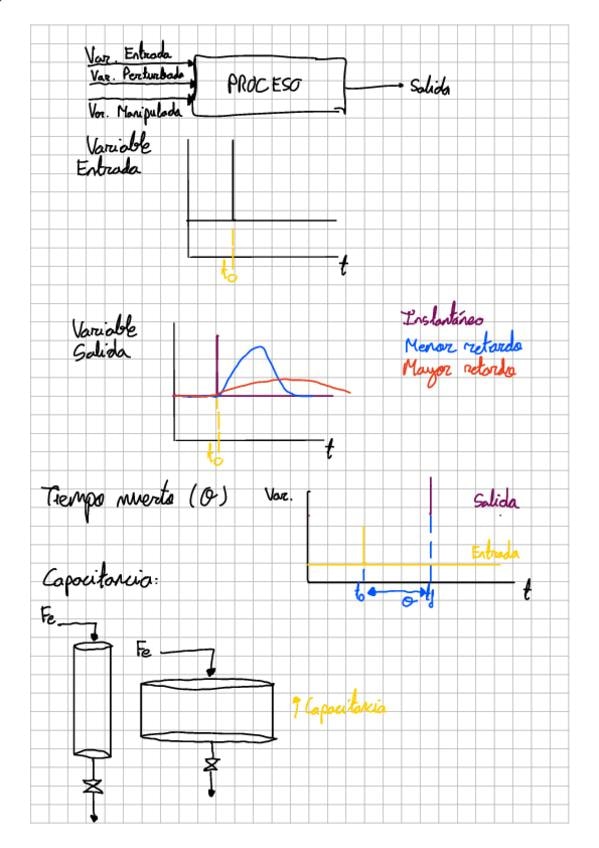 Var. Entrada
Var. Perturbada
Var. Manipulada
PROCESO
Salida
Variable
Entrada
t0
t
Variable
Salida
Instantáneo
Menor retardo
Mayor retardo
t0
t
Tiempo muerto (θ)
Var.
Salida
Entrada
t0
θ
t
Capacitancia:
Fe
Fe
↑ Capacitancia